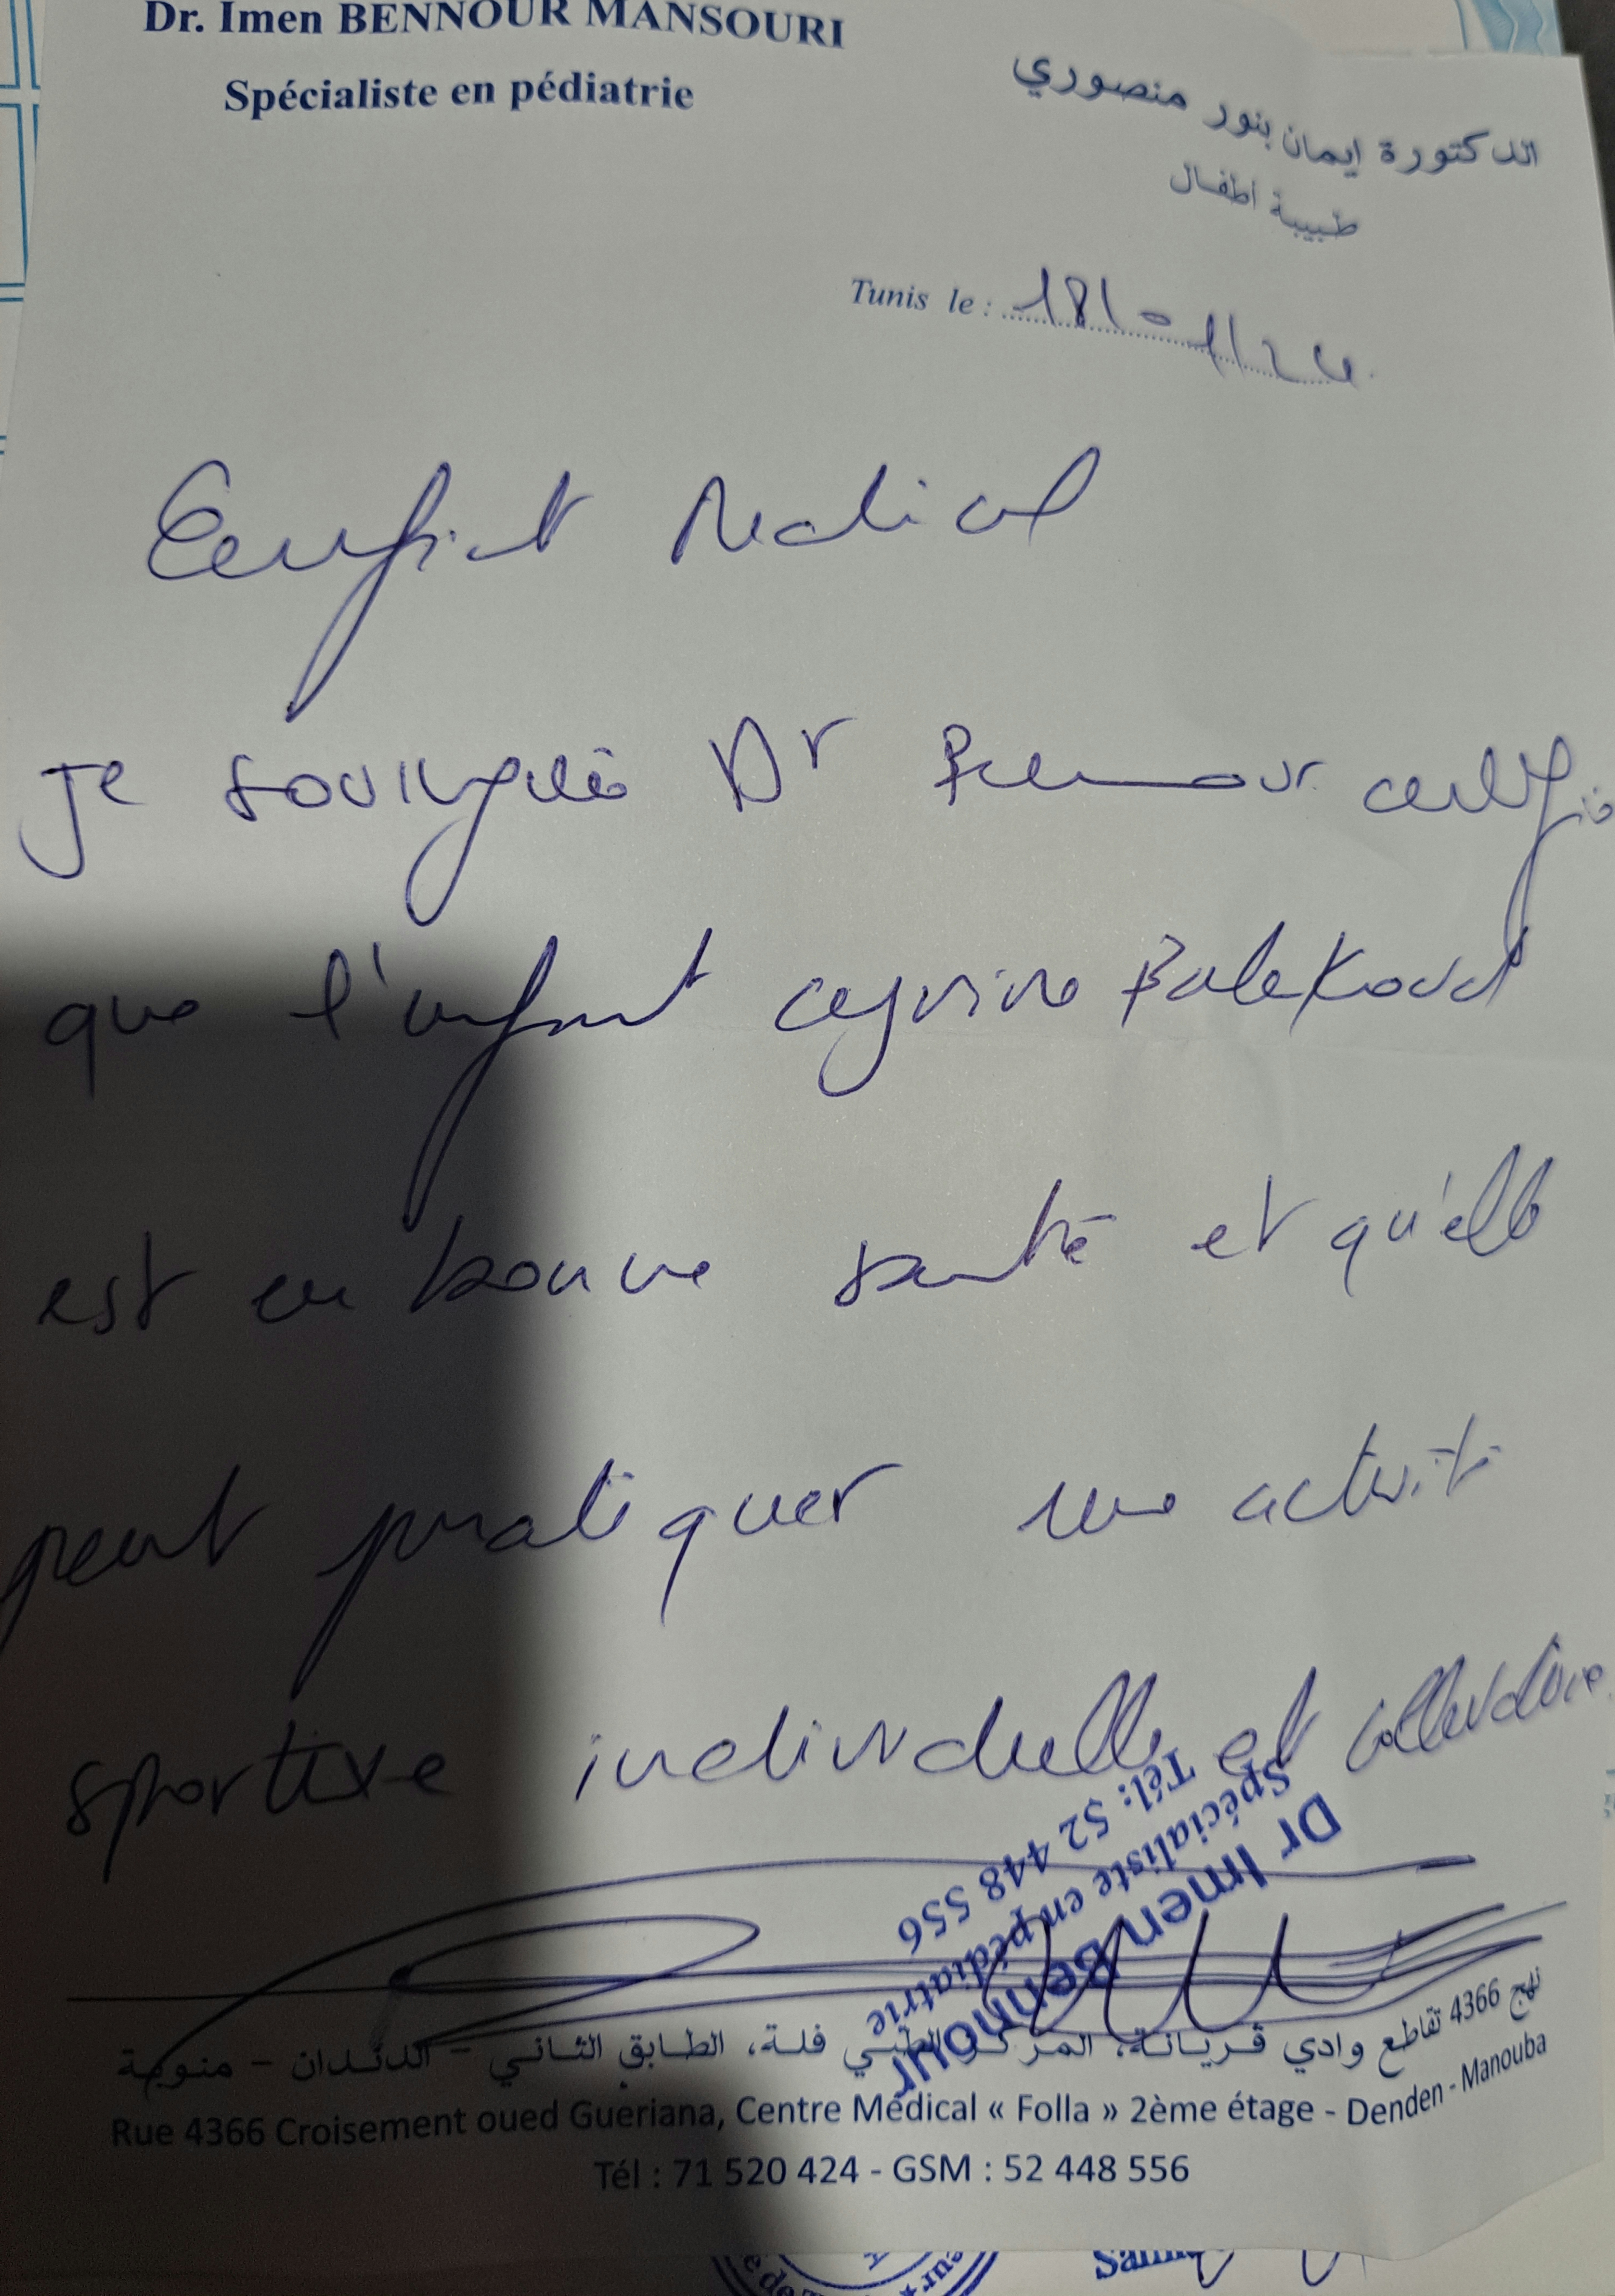 Dr. Imen BENNOUR MANSOURI
Spécialiste en pédiatrie
الدكتورة ايمان بنور منصوري
طبيبة اطفال
Tunis le : 18/01/24
Certificat Medical
Je soussignée Dr Bennour certifie
que l'enfant
est en bonne santé et qu'elle
peut pratiquer une activité
sportive individuelle et collective
Dr Imen Bennour
Spécialiste en pédiatrie
Tél: 52 448 556
نهج 4366 تقاطع وادي قريانة، المركز الطبي فلة، الطابق الثاني - الدندان - منوبة
Rue 4366 Croisement oued Gueriana, Centre Médical « Folla » 2ème étage - Denden - Manouba
Tél : 71 520 424 - GSM : 52 448 556